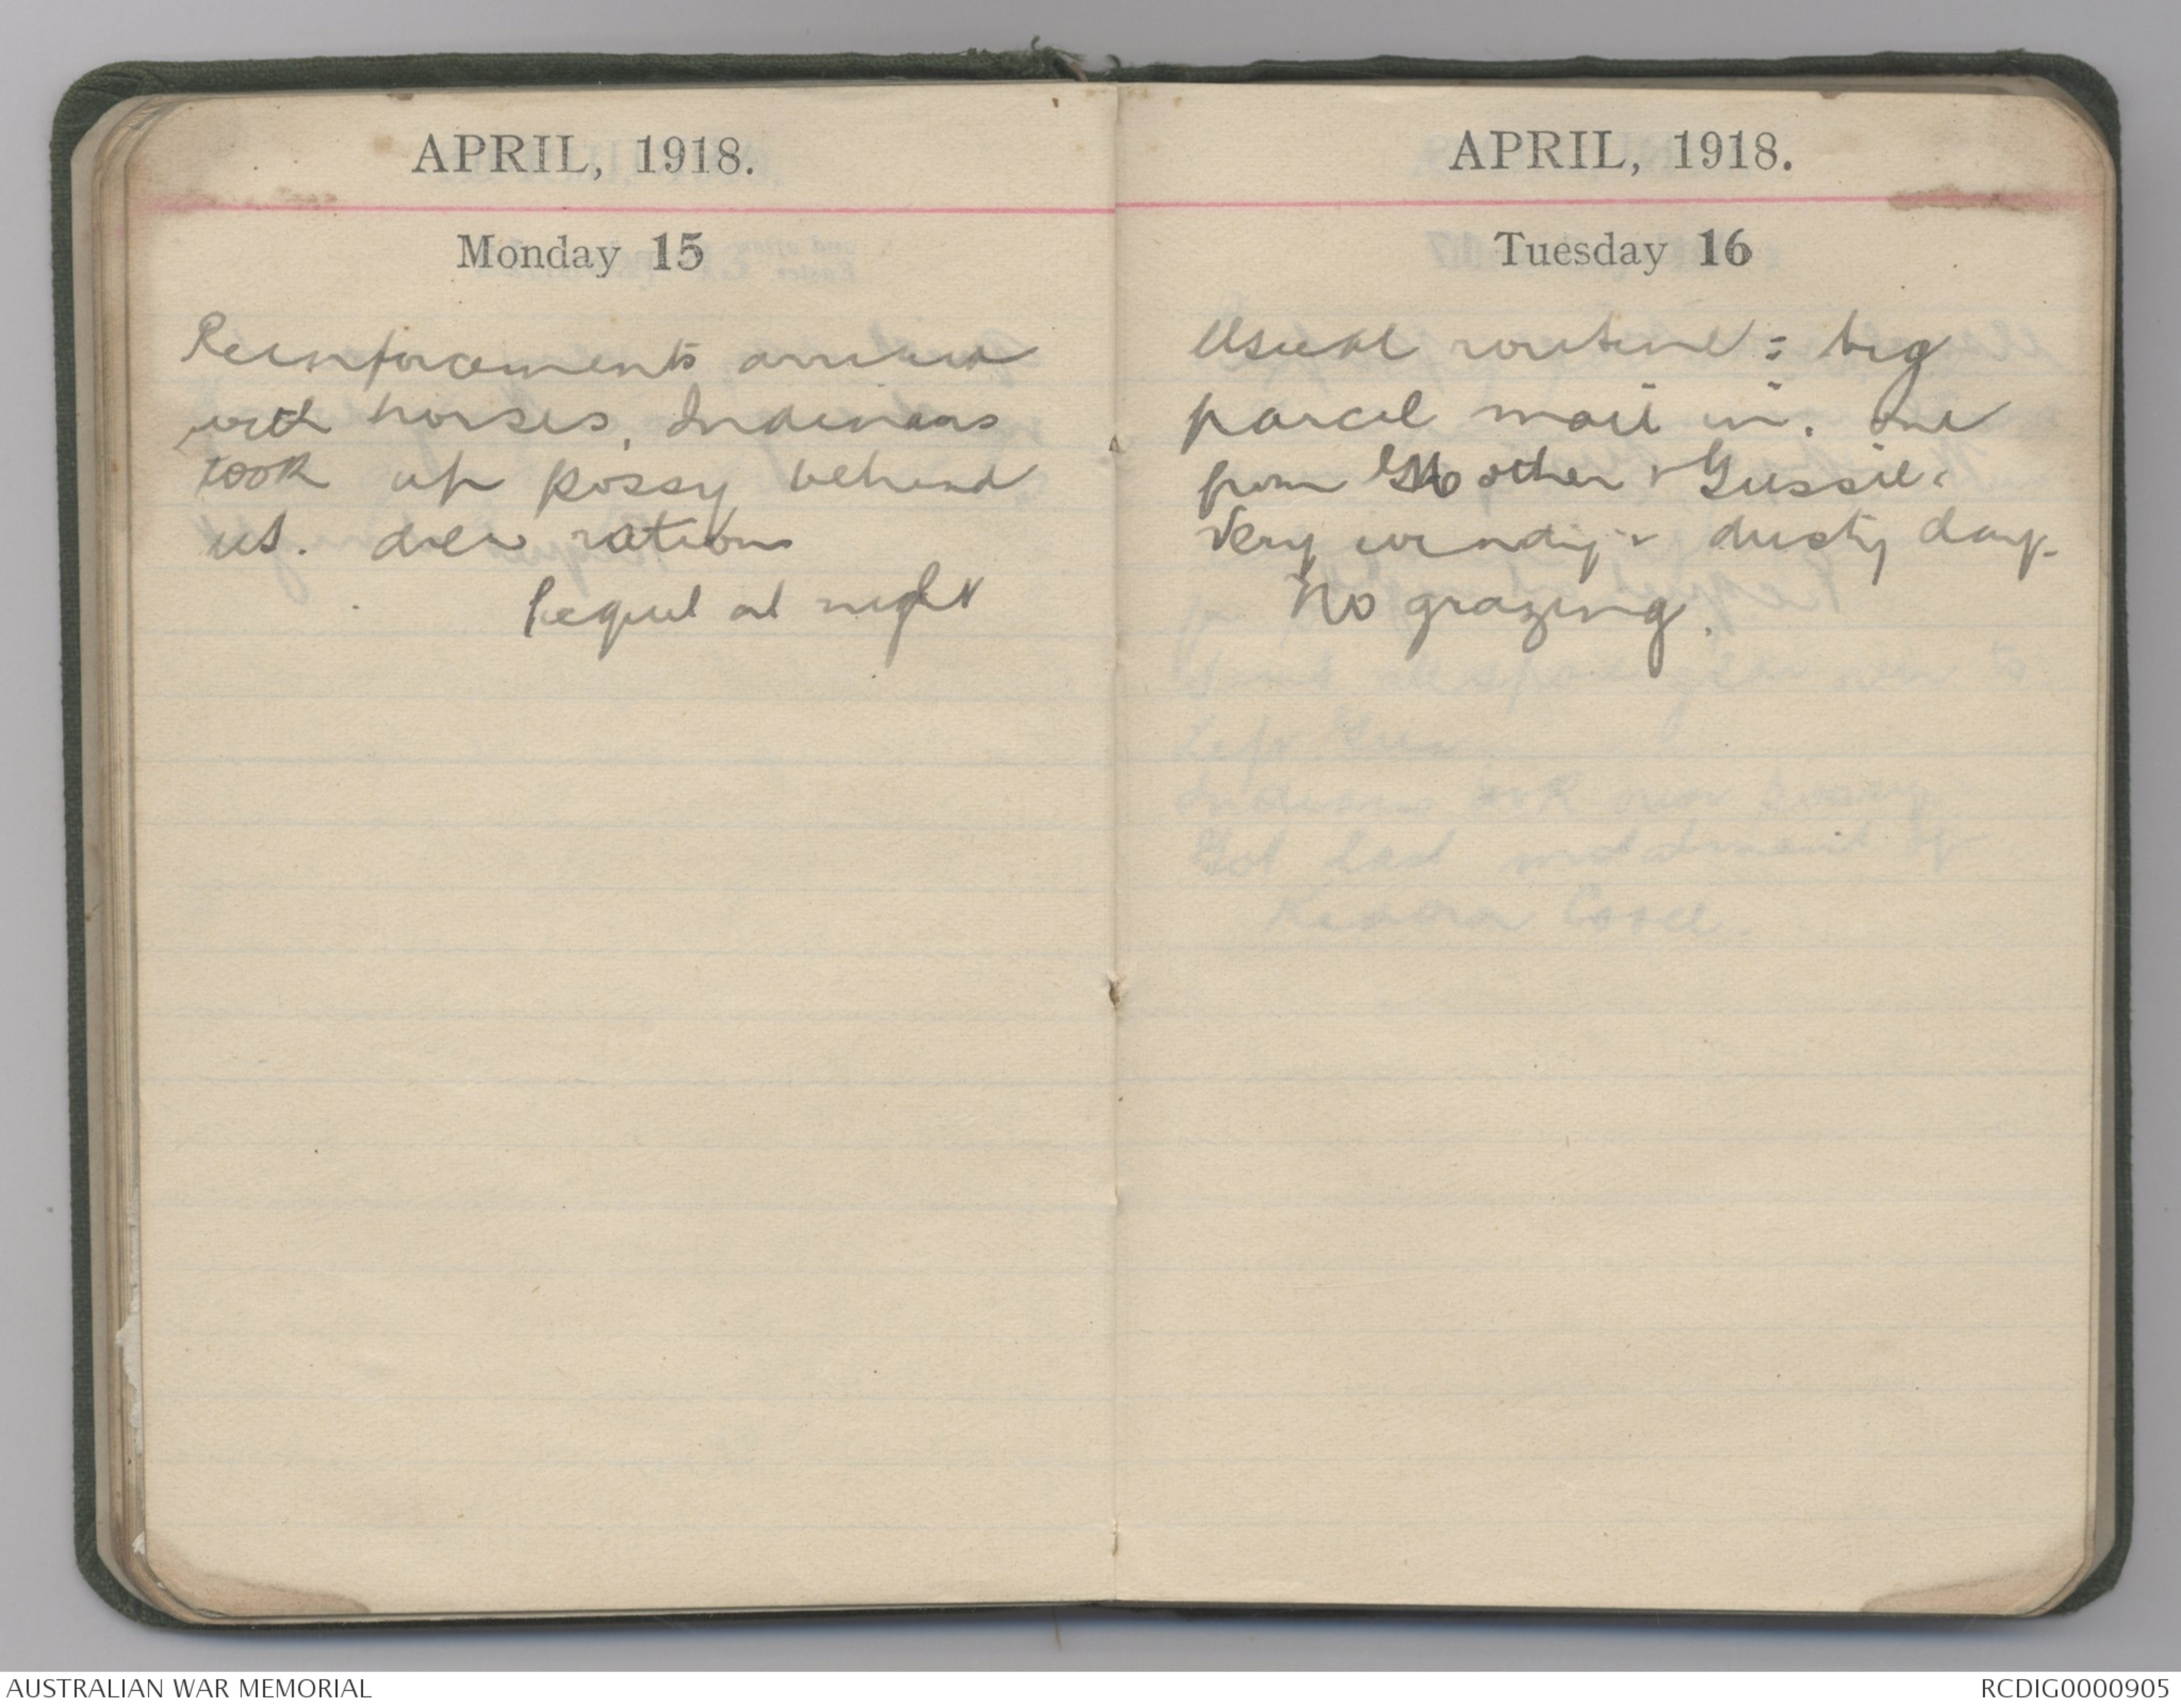 APRIL, 1918.
Monday 15
Reinforcements arrived
with horses, Indians
took up possy behind
us. drew rations
Piquet at night
APRIL, 1918.
Tuesday 16
Usual routine: big
parcel mail in. one
from Mother & Gussie.
Very windy & dusty day.
No grazing.
AUSTRALIAN WAR MEMORIAL
RCDIG0000905